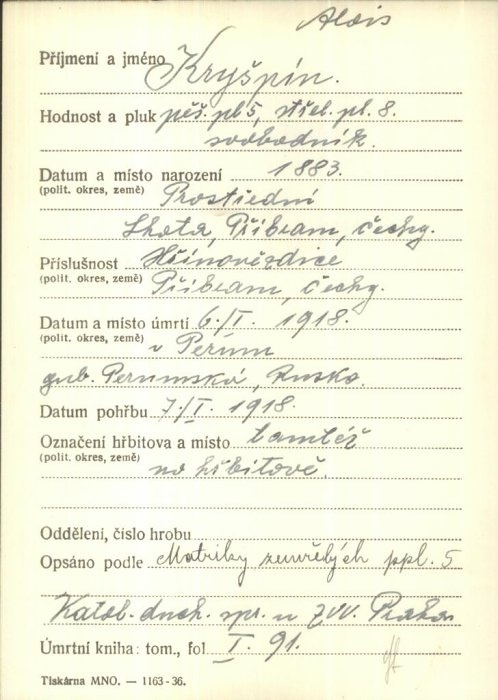 Alois
Příjmení a jméno Kryšpín.
Hodnost a pluk pěš. pl. 5, střel. pl. 8.
svobodník.
Datum a místo narození 1883.
(polit. okres, země) Prostřední
Lhota, Příbram, Čechy.
Příslušnost Hřínovězdice
(polit. okres, země) Příbram, Čechy.
Datum a místo úmrtí 6./I. 1918.
(polit. okres, země) v Permu
gub. Permská, Rusko.
Datum pohřbu 7./I. 1918.
Označení hřbitova a místo tamtéž
(polit. okres, země) na hřbitově.
Oddělení, číslo hrobu
Opsáno podle Matriky zemřelých ppl. 5
Katol. duch. spr. u ZVV. Praha
Úmrtní kniha: tom., fol I. 91.
Tiskárna MNO. — 1163-36.